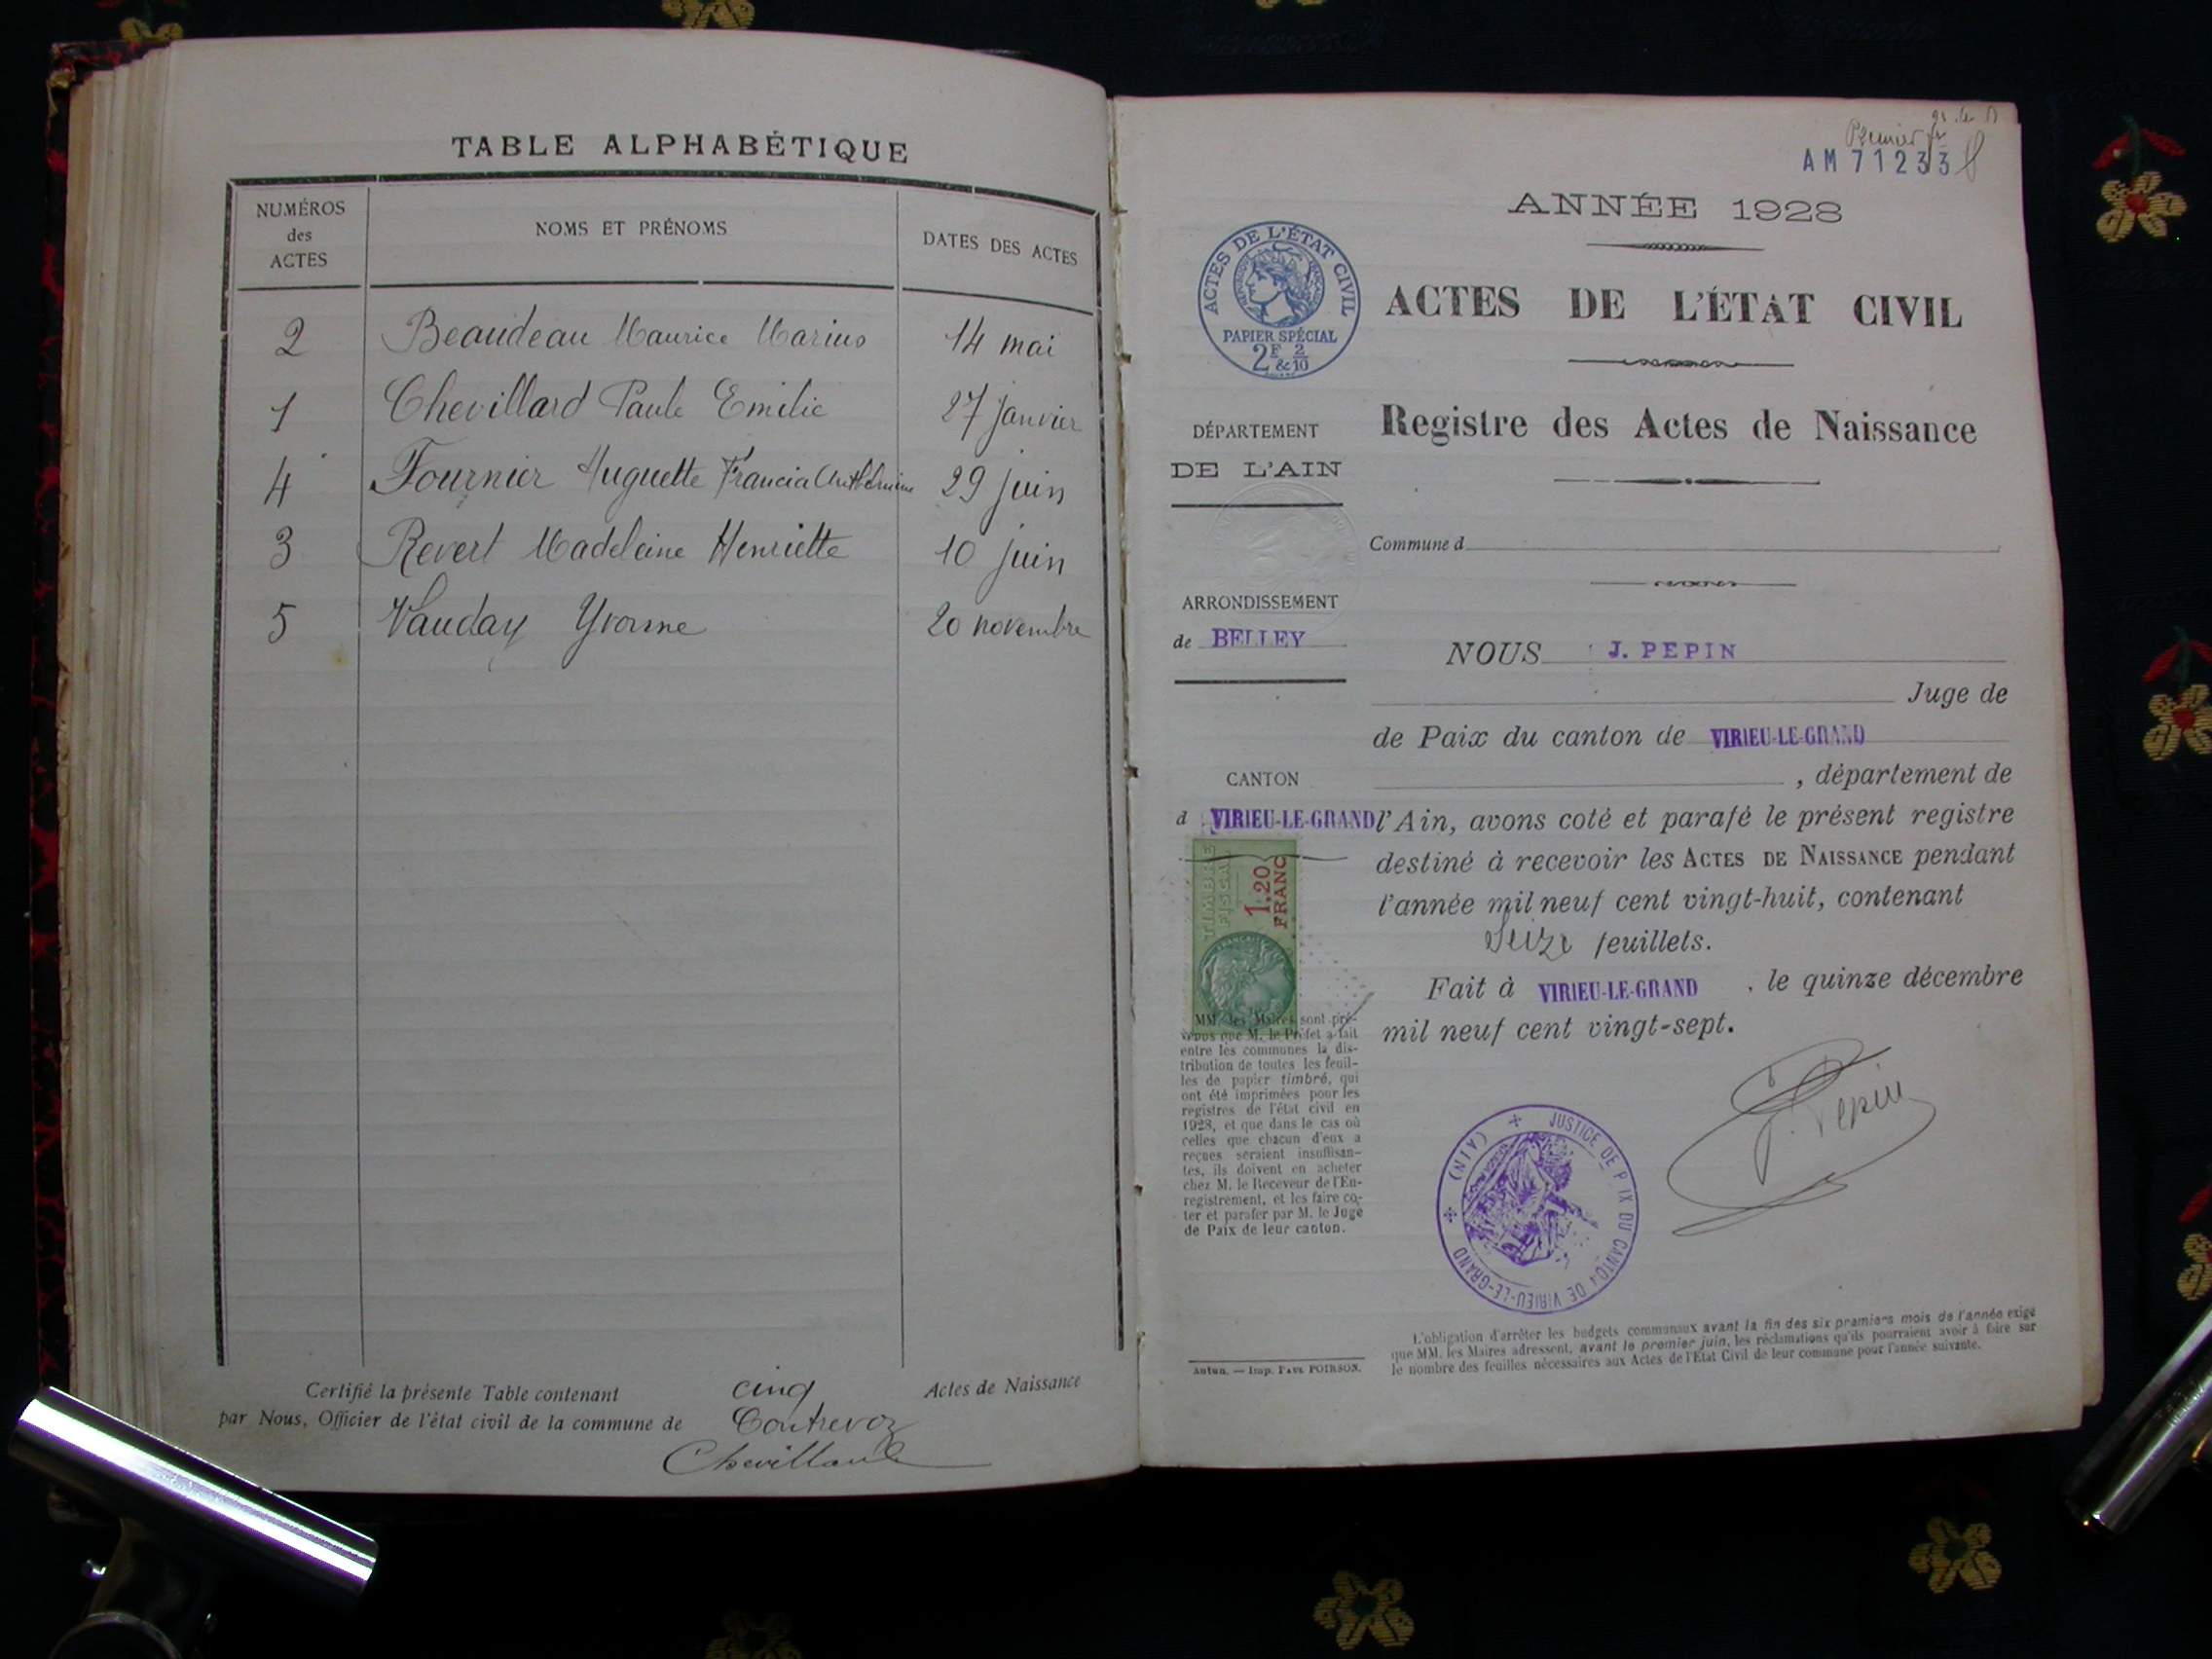 TABLE ALPHABÉTIQUE
NUMÉROS
des
ACTES
NOMS ET PRÉNOMS
DATES DES ACTES
2 Beaudeau Maurice Marius 14 mai
1 Chevillard Paule Emilie 27 janvier
4 Fournier Huguette Francia Anthelmine 29 juin
3 Revert Madeleine Henriette 10 juin
5 Vauday Yvonne 20 novembre
Certifié la présente Table contenant cinq Actes de Naissance
par Nous, Officier de l'état civil de la commune de Contrevoz
Chevillard
Premier
AM 71233
ANNÉE 1928
ACTES DE L'ÉTAT CIVIL
RÉPUBLIQUE FRANÇAISE
PAPIER SPÉCIAL
2F & 2/10
ACTES DE L'ÉTAT CIVIL
Registre des Actes de Naissance
DÉPARTEMENT
DE L'AIN
Commune d
ARRONDISSEMENT
de BELLEY
NOUS J. PEPIN
Juge de
de Paix du canton de VIRIEU-LE-GRAND
CANTON
d VIRIEU-LE-GRAND
, département de
l'Ain, avons coté et parafé le présent registre
destiné à recevoir les ACTES DE NAISSANCE pendant
l'année mil neuf cent vingt-huit, contenant
Seize feuillets.
Fait à VIRIEU-LE-GRAND, le quinze décembre
mil neuf cent vingt-sept.
TIMBRE
FISCAL
1.20
FRANC
MM. les Maires sont pré-
venus que M. le Préfet a fait
entre les communes la dis-
tribution de toutes les feuil-
les de papier timbré, qui
ont été imprimées pour les
registres de l'état civil en
1928, et que dans le cas où
celles que chacun d'eux a
reçues seraient insuffisan-
tes, ils doivent en acheter
chez M. le Receveur de l'En-
registrement, et les faire co-
ter et parafer par M. le Juge
de Paix de leur canton.
J. Pepin
JUSTICE DE P IX DU CANTON DE VIRIEU-LE-GRAND (AIN)
Autun. — Imp. PAUL POIRSON.
L'obligation d'arrêter les budgets communaux avant la fin des six premiers mois de l'année exige
que MM. les Maires adressent, avant le premier juin, les réclamations qu'ils pourraient avoir à faire sur
le nombre des feuilles nécessaires aux Actes de l'État Civil de leur commune pour l'année suivante.